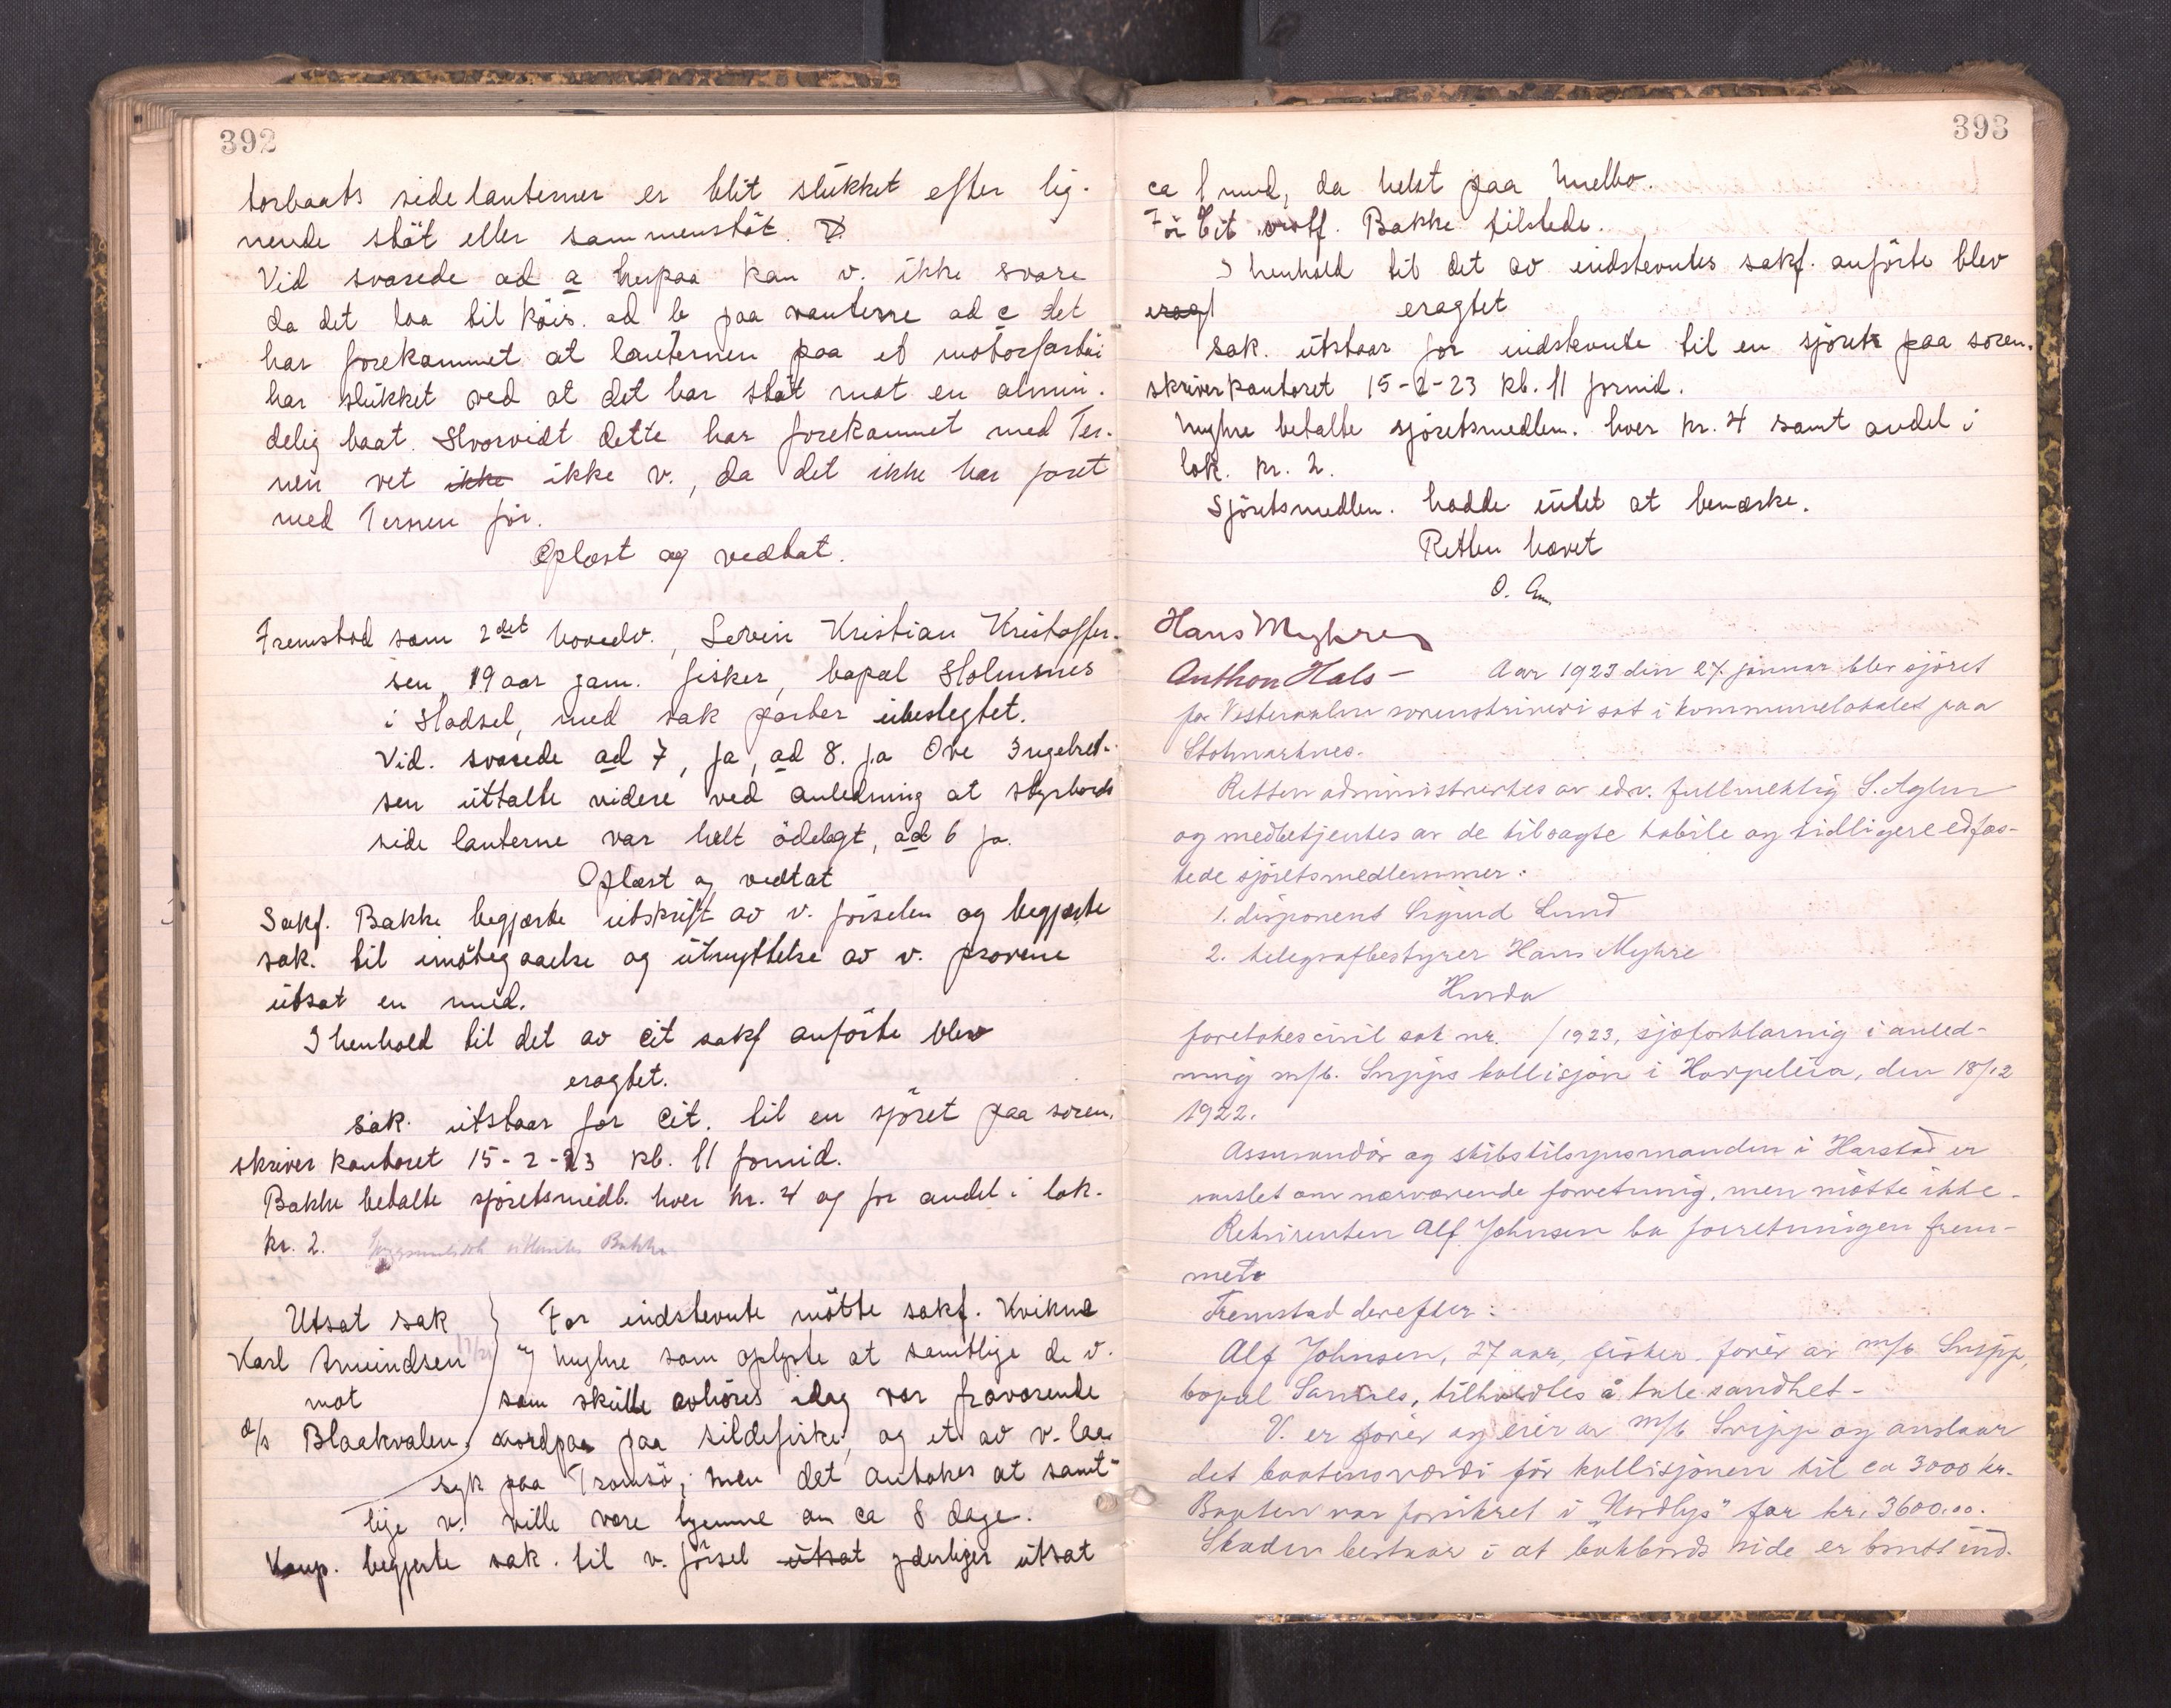 392
torbaats sidelanterner er blit slukket efter lig-
nende støt eller sammenstøt.
Vid svarede ad a herpaa kan v. ikke svare
da det laa til køis. ad b paa vanterne ad c det
har forekommet at lanternen paa et motorfartøi
har slukket ved at det har støt mot en almin-
delig baat. Hvorvidt dette har forekommet med Ter-
nen vet ikke ikke v., da det ikke har faret
med Ternen før.
Oplæst og vedtat.
Fremstod som 2det hovedv., Servin Kristian Kristoffer-
sen 19 aar gam. fisker, bopæl Holmsnes
i Hadsel, med sak parter ubeslegtet.
Vid. svarede ad 7, ja, ad 8. ja Ove Ingebret-
sen uttalte videre ved anledning at styrbords
side lanterne var helt ødelagt, ad 6 ja.
Oplæst og vedtat
Sakf. Bakke begjærte utskrift av v. førselen og begjærte
sak. til imøtegaaelse og utnyttelse av v. provene
utsat en mnd.
I henhold til det av cit sakf anførte blev
eragtet.
Sak. utstaar for cit. til en sjøret paa soren-
skriver kontoret 15-2-23 kl. 11 formid.
Bakke betalte sjøretsmedl. hver kr. 4 og for andel i lok.
kr. 2. Bakke
Utsat sak
Karl Amundsen
mot
d/s Blaakvalen.
For indstevnte møtte sakf. Kvikne
Myhre som oplyste at samtlige de v.
som skulle avhøres idag var fraværende
nordpaa paa sildefiske, og et av v. laa
syk paa Tromsø, men det antokes at samt-
lige v. ville være hjemme om ca 8 dage.
Komp. begjærte sak. til v. førsel utsat yderligere utsat
393
ca 1 mnd, da helst paa Melbo.
For Cit. møtt. Bakke tilstede.
I henhold til det av indstevntes sakf. anførte blev
eragt eragtet
Sak. utstaar for indstevnte til en sjøret paa soren-
skriverkontoret 15-2-23 kl. 11 formid.
Myhre betalte sjøretsmedlem. hver kr. 4 samt andel i
lok. kr. 2.
Sjøretsmedlem. hadde intet at bemærke.
Retten hævet
Hans Myhre
Anthon Hals - Aar 1923 den 27. januar blev sjøret
for Vesteraalen sorenskriveri sat i kommunelokalet paa
Stokmarknes.
Retten administrertes av edsv. fullmektig S. Aglen
og medbetjentes av de tilsagte habile og tidligere edfæs-
tede sjøretsmedlemmer:
1. disponent Sigurd Lund
2. telegrafbestyrer Hans Myhre
Hvorda
foretokes civil sak nr. /1923, sjøforklaring i anled-
ning m/b. Snipps kollisjon i Harpeleia, den 18/12
1922.
Assurandør og skibstilsynsmanden i Harstad er
varslet om nærværende forretning, men møtte ikke.
Rekvirenten Alf Johnsen ba forretningen frem-
met.
Fremstod derefter:
Alf Johnsen, 27 aar, fisker. fører av m/b Snipp,
bopæl Sannes, tilholdtes å tale sandhet-
V. er fører og eier av m/b Snipp og anslaar
det baatens værdi før kollisjonen til ca 3000 kr.
Baaten var forsikret i "Nordlys" for kr. 3600.00.
Skaden bestaar i at babords side er brutt ind.